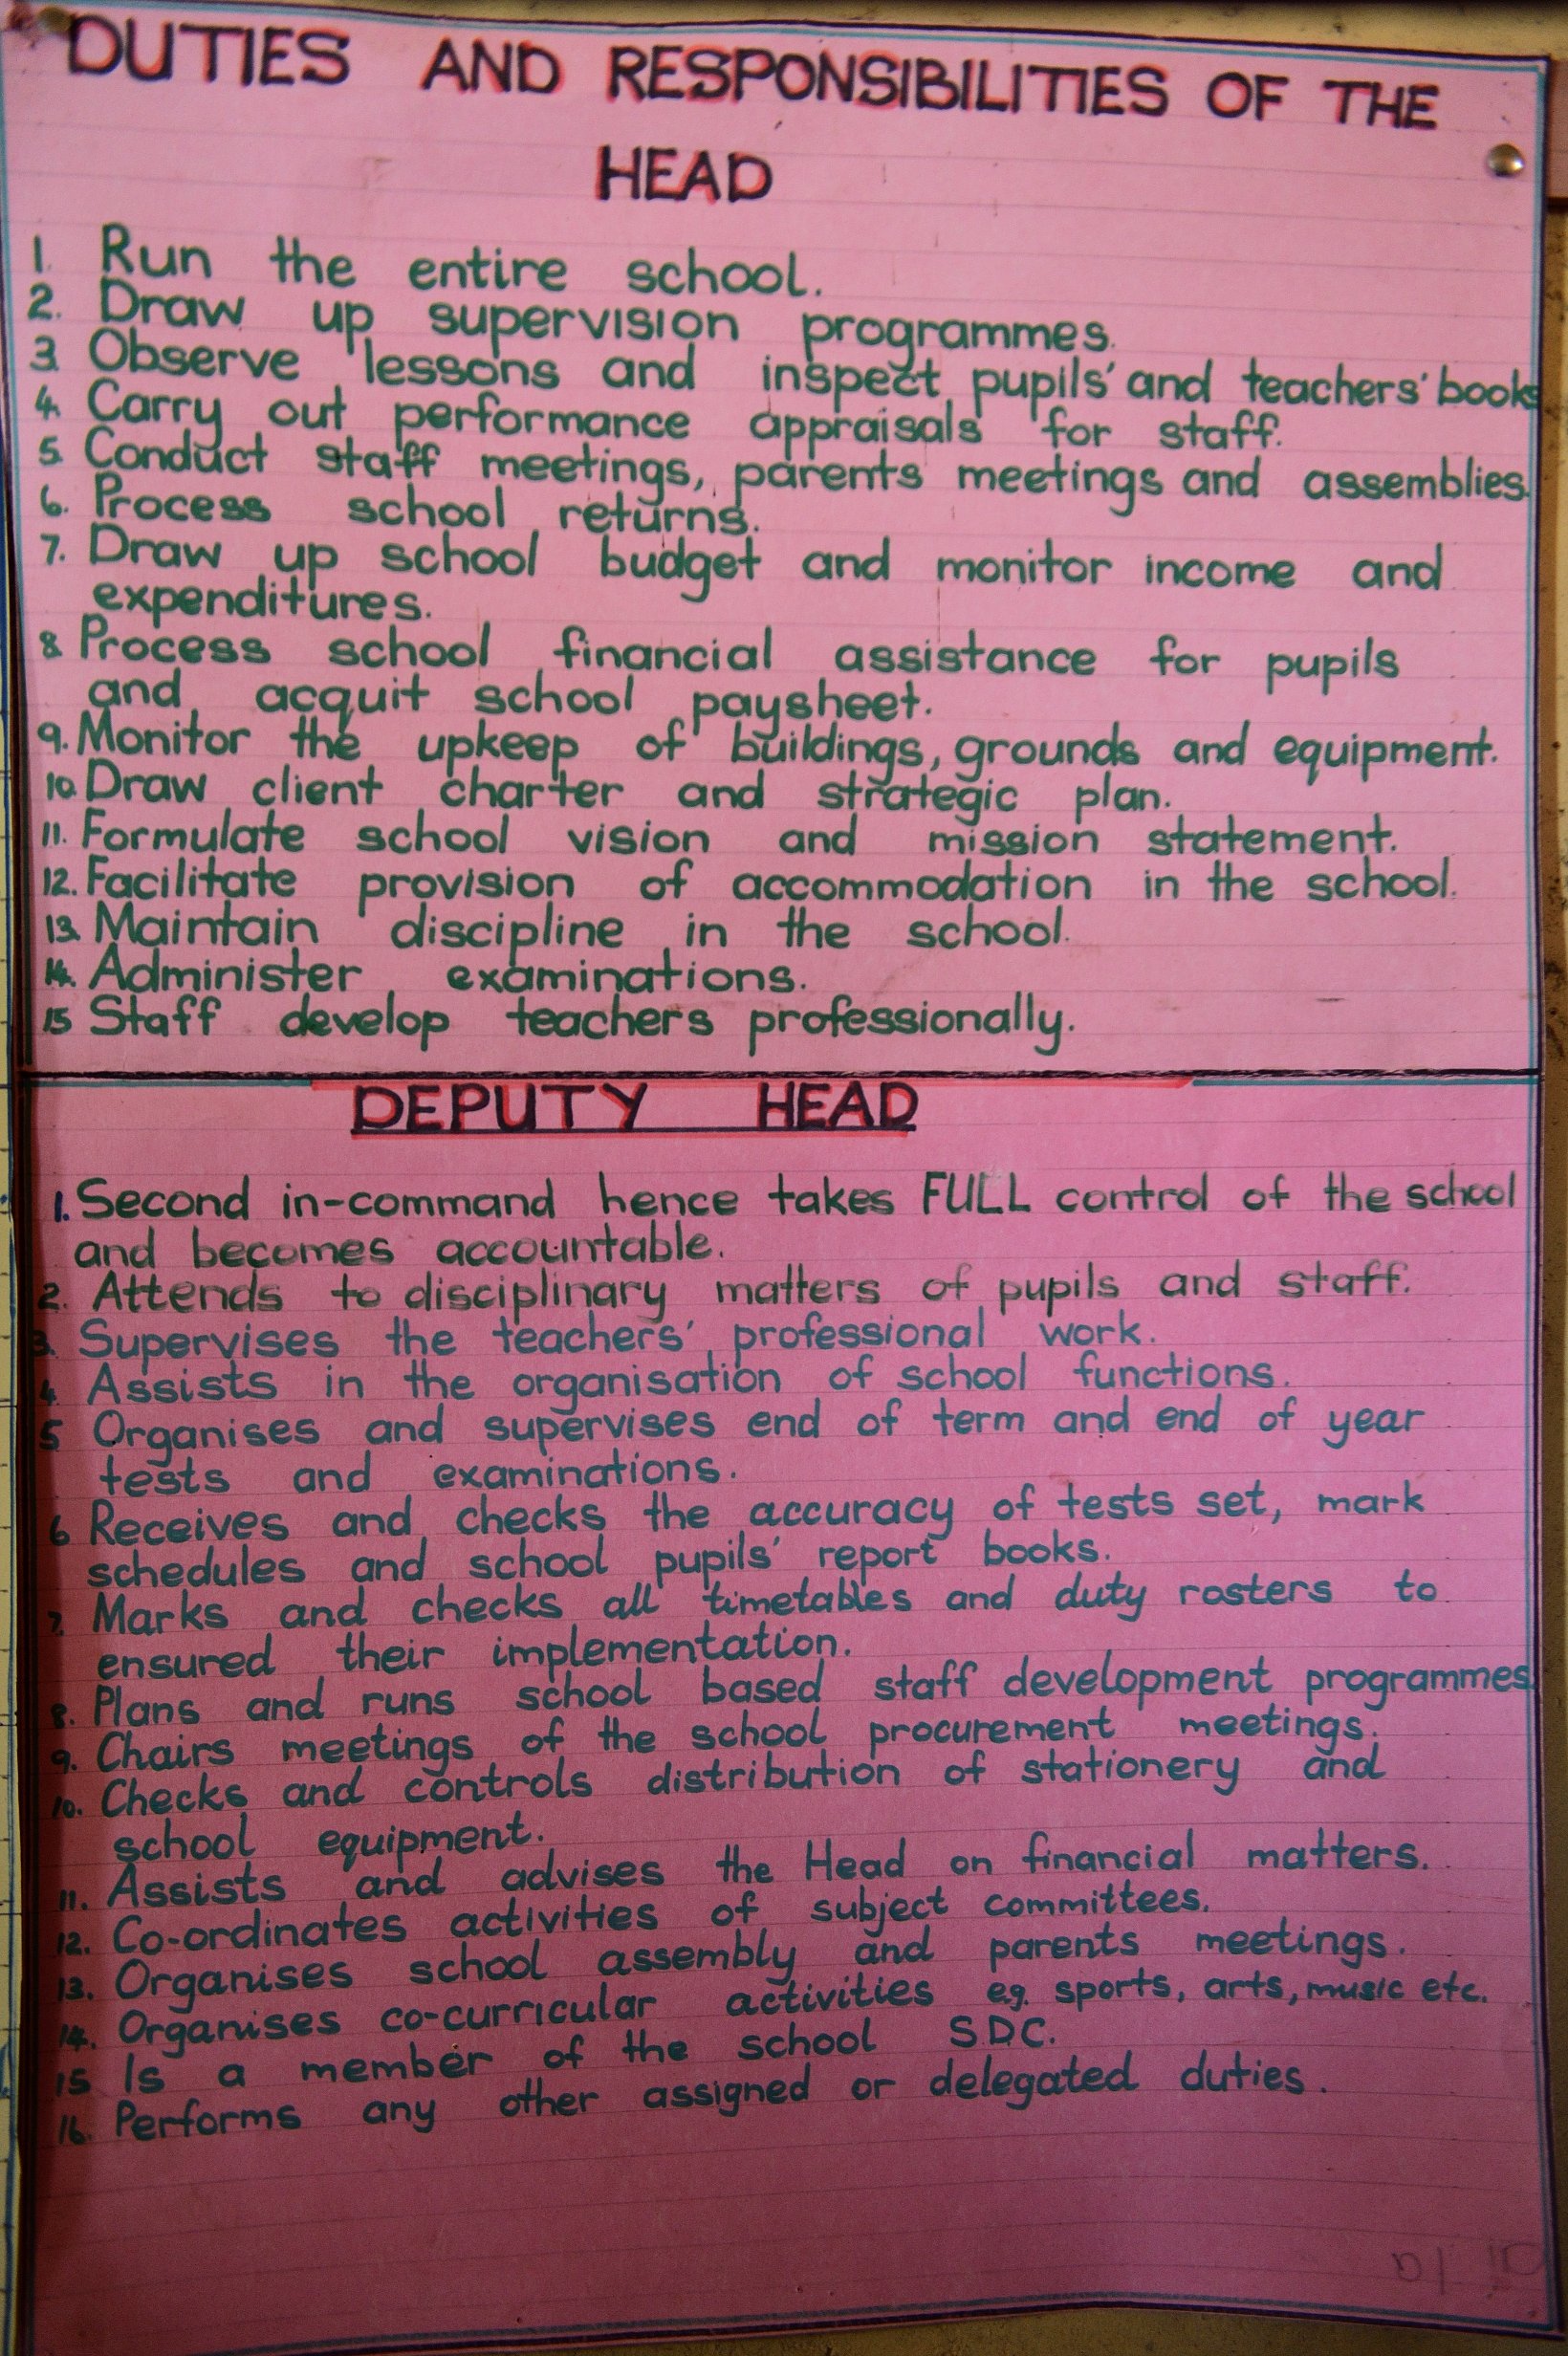 DUTIES AND RESPONSIBILITIES OF THE
HEAD
1. Run the entire school.
2. Draw up supervision programmes.
3. Observe lessons and inspect pupils' and teachers' books
4. Carry out performance appraisals for staff.
5. Conduct staff meetings, parents meetings and assemblies.
6. Process school returns.
7. Draw up school budget and monitor income and
expenditures.
8. Process school financial assistance for pupils
and acquit school paysheet.
9. Monitor the upkeep of buildings, grounds and equipment.
10. Draw client charter and strategic plan.
11. Formulate school vision and mission statement.
12. Facilitate provision of accommodation in the school.
13. Maintain discipline in the school.
14. Administer examinations.
15 Staff develop teachers professionally.
DEPUTY HEAD
1. Second in-command hence takes FULL control of the school
and becomes accountable.
2. Attends to disciplinary matters of pupils and staff.
3. Supervises the teachers' professional work.
4. Assists in the organisation of school functions.
5 Organises and supervises end of term and end of year
tests and examinations.
6 Receives and checks the accuracy of tests set, mark
schedules and school pupils' report books.
7. Marks and checks all timetables and duty rosters to
ensured their implementation.
8. Plans and runs school based staff development programmes
9. Chairs meetings of the school procurement meetings.
10. Checks and controls distribution of stationery and
school equipment.
11. Assists and advises the Head on financial matters.
12. Co-ordinates activities of subject committees.
13. Organises school assembly and parents meetings.
14. Organises co-curricular activities e.g. sports, arts, music etc.
15 Is a member of the school S.D.C.
16. Performs any other assigned or delegated duties.